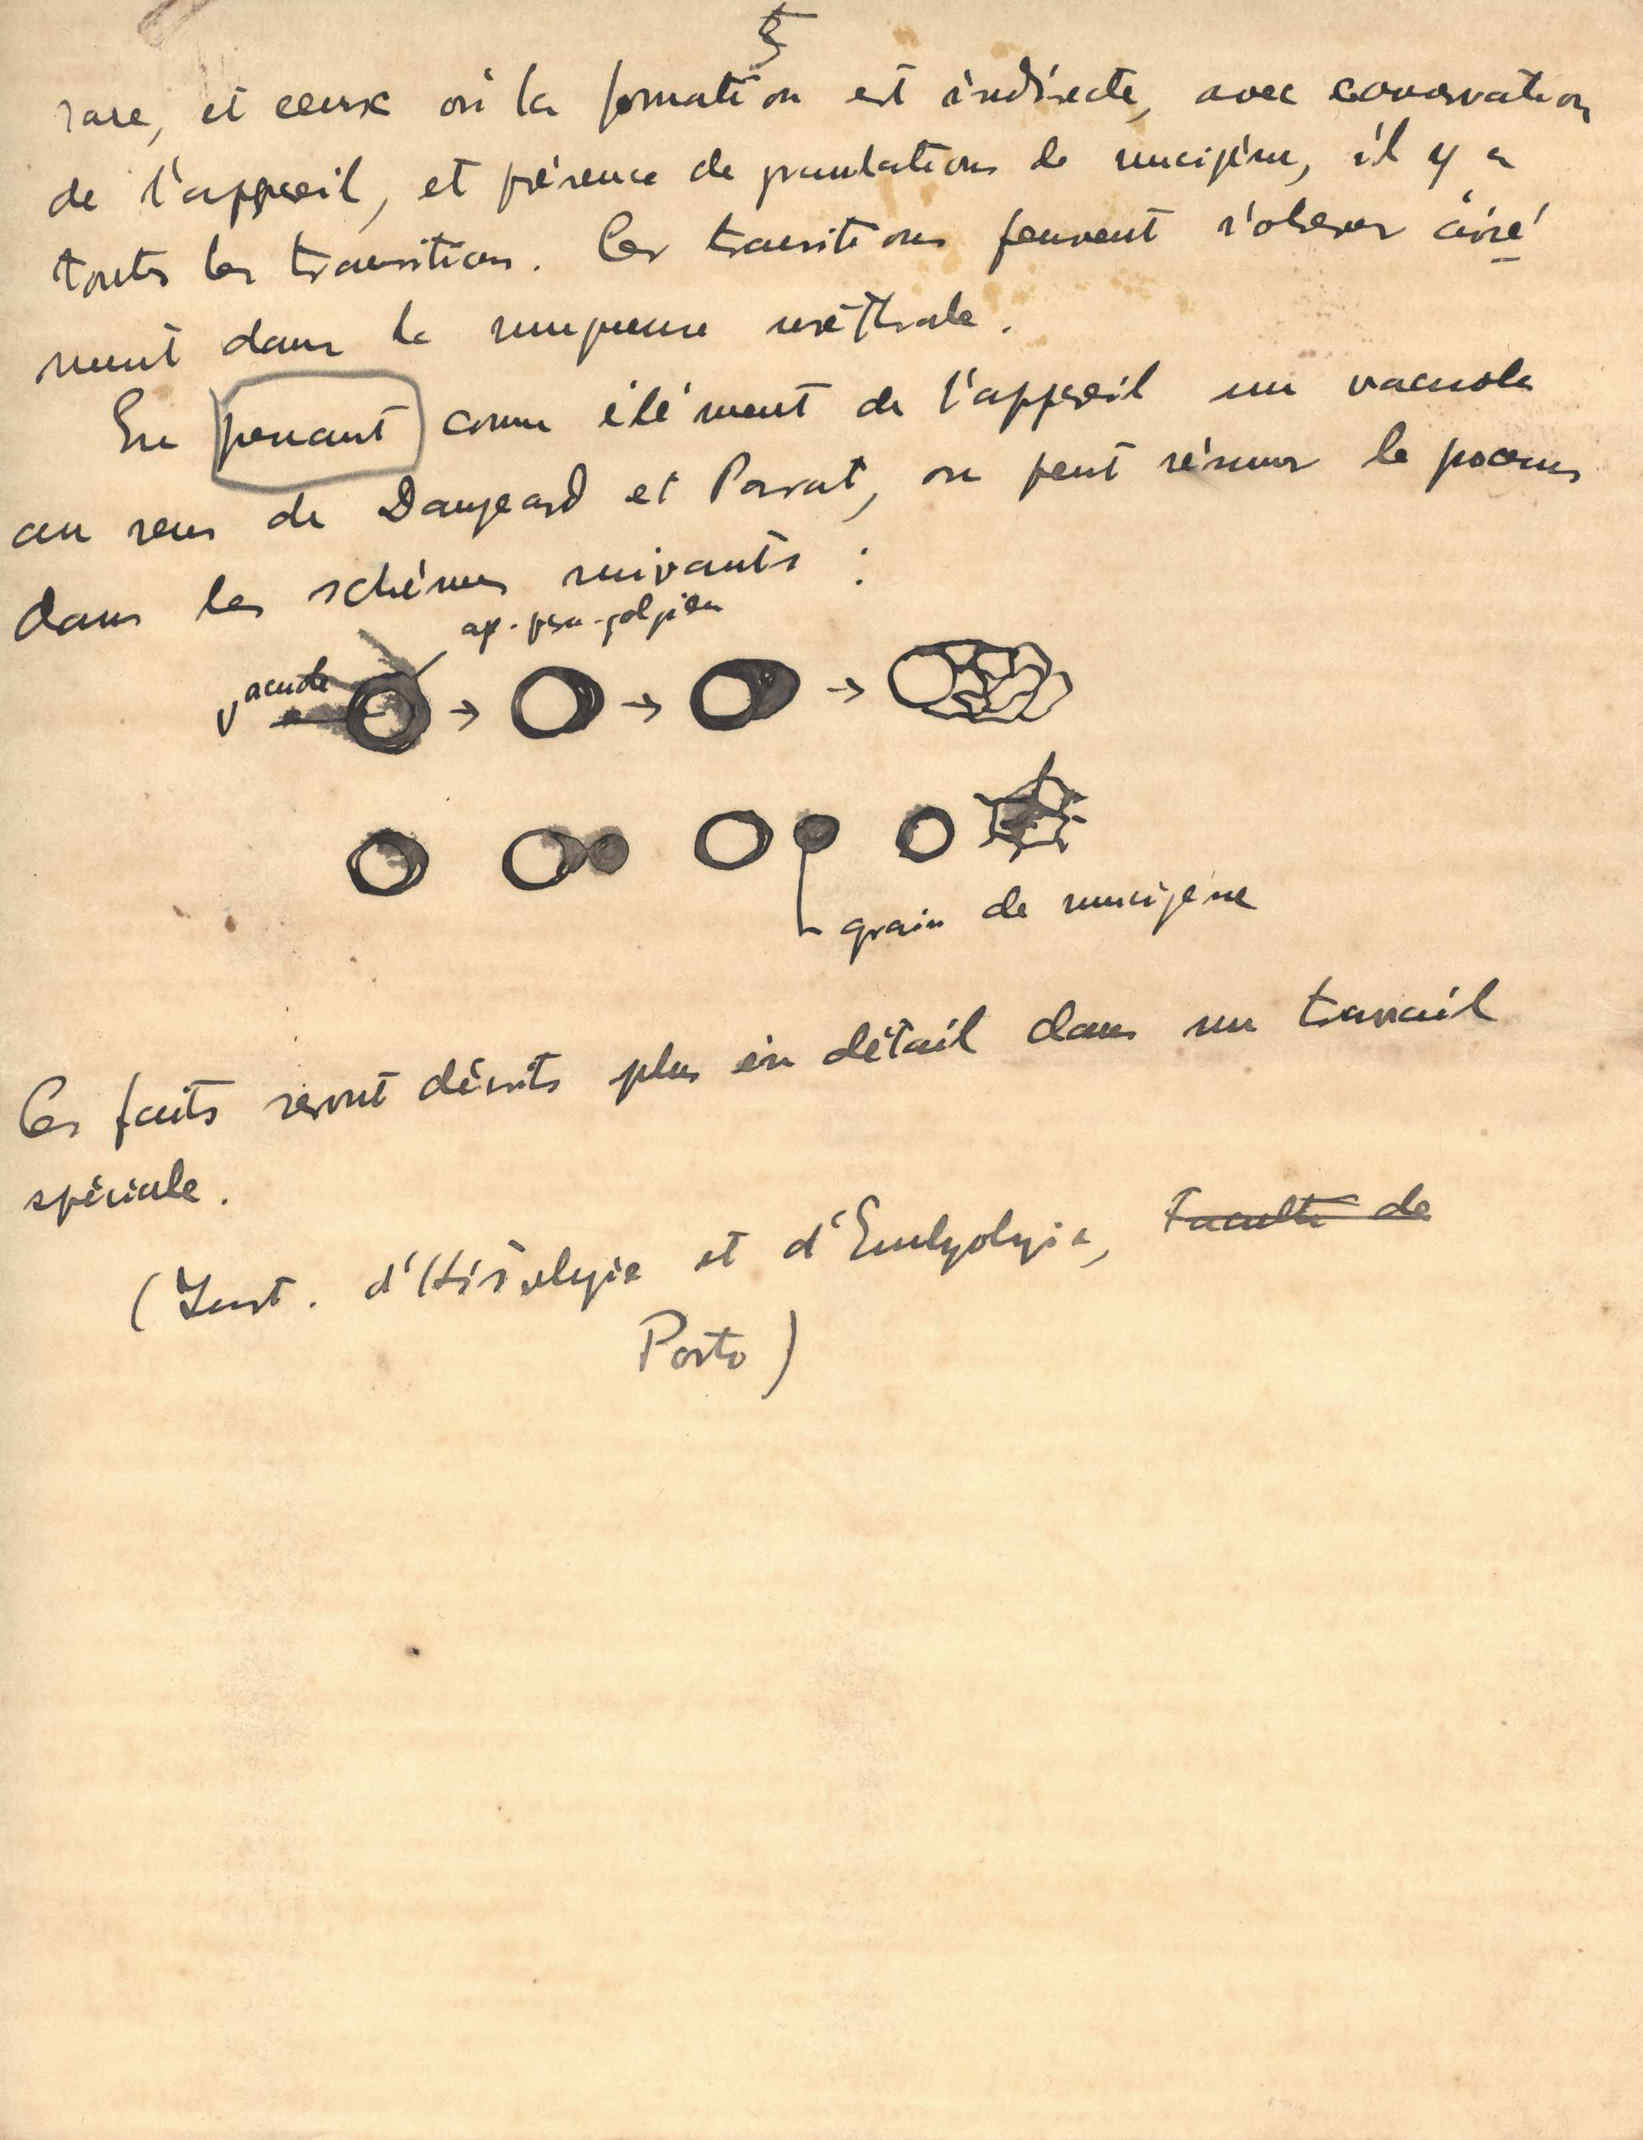 5
rare, et ceux où la formation est indirecte, avec conservation
de l'appareil, et présence de granulations de mucigène, il y a
toutes les transitions. Ces transitions peuvent s'observer aisé
ment dans la muqueuse uréthrale.
En prenant comme élément de l'appareil un vacuole
au sens de Dangeard et Parat, on peut résumer le processus
dans les schémes suivants :
ap. golgien
vacuole
grain de mucigène
Ces faits seront décrits plus en détail dans un travail
spéciale.
(Inst. d'Histologie et d'Embryologie, Faculté de
Porto)